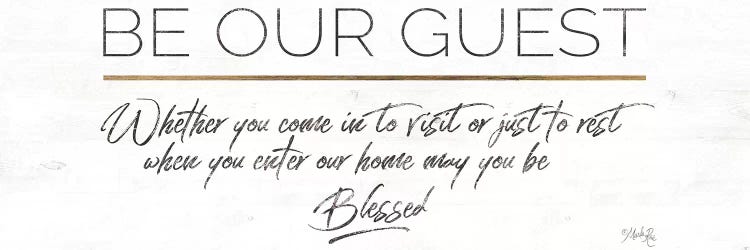 BE OUR GUEST
Whether you come in to visit or just to rest
when you enter our home may you be
Blessed
©Marla Rae